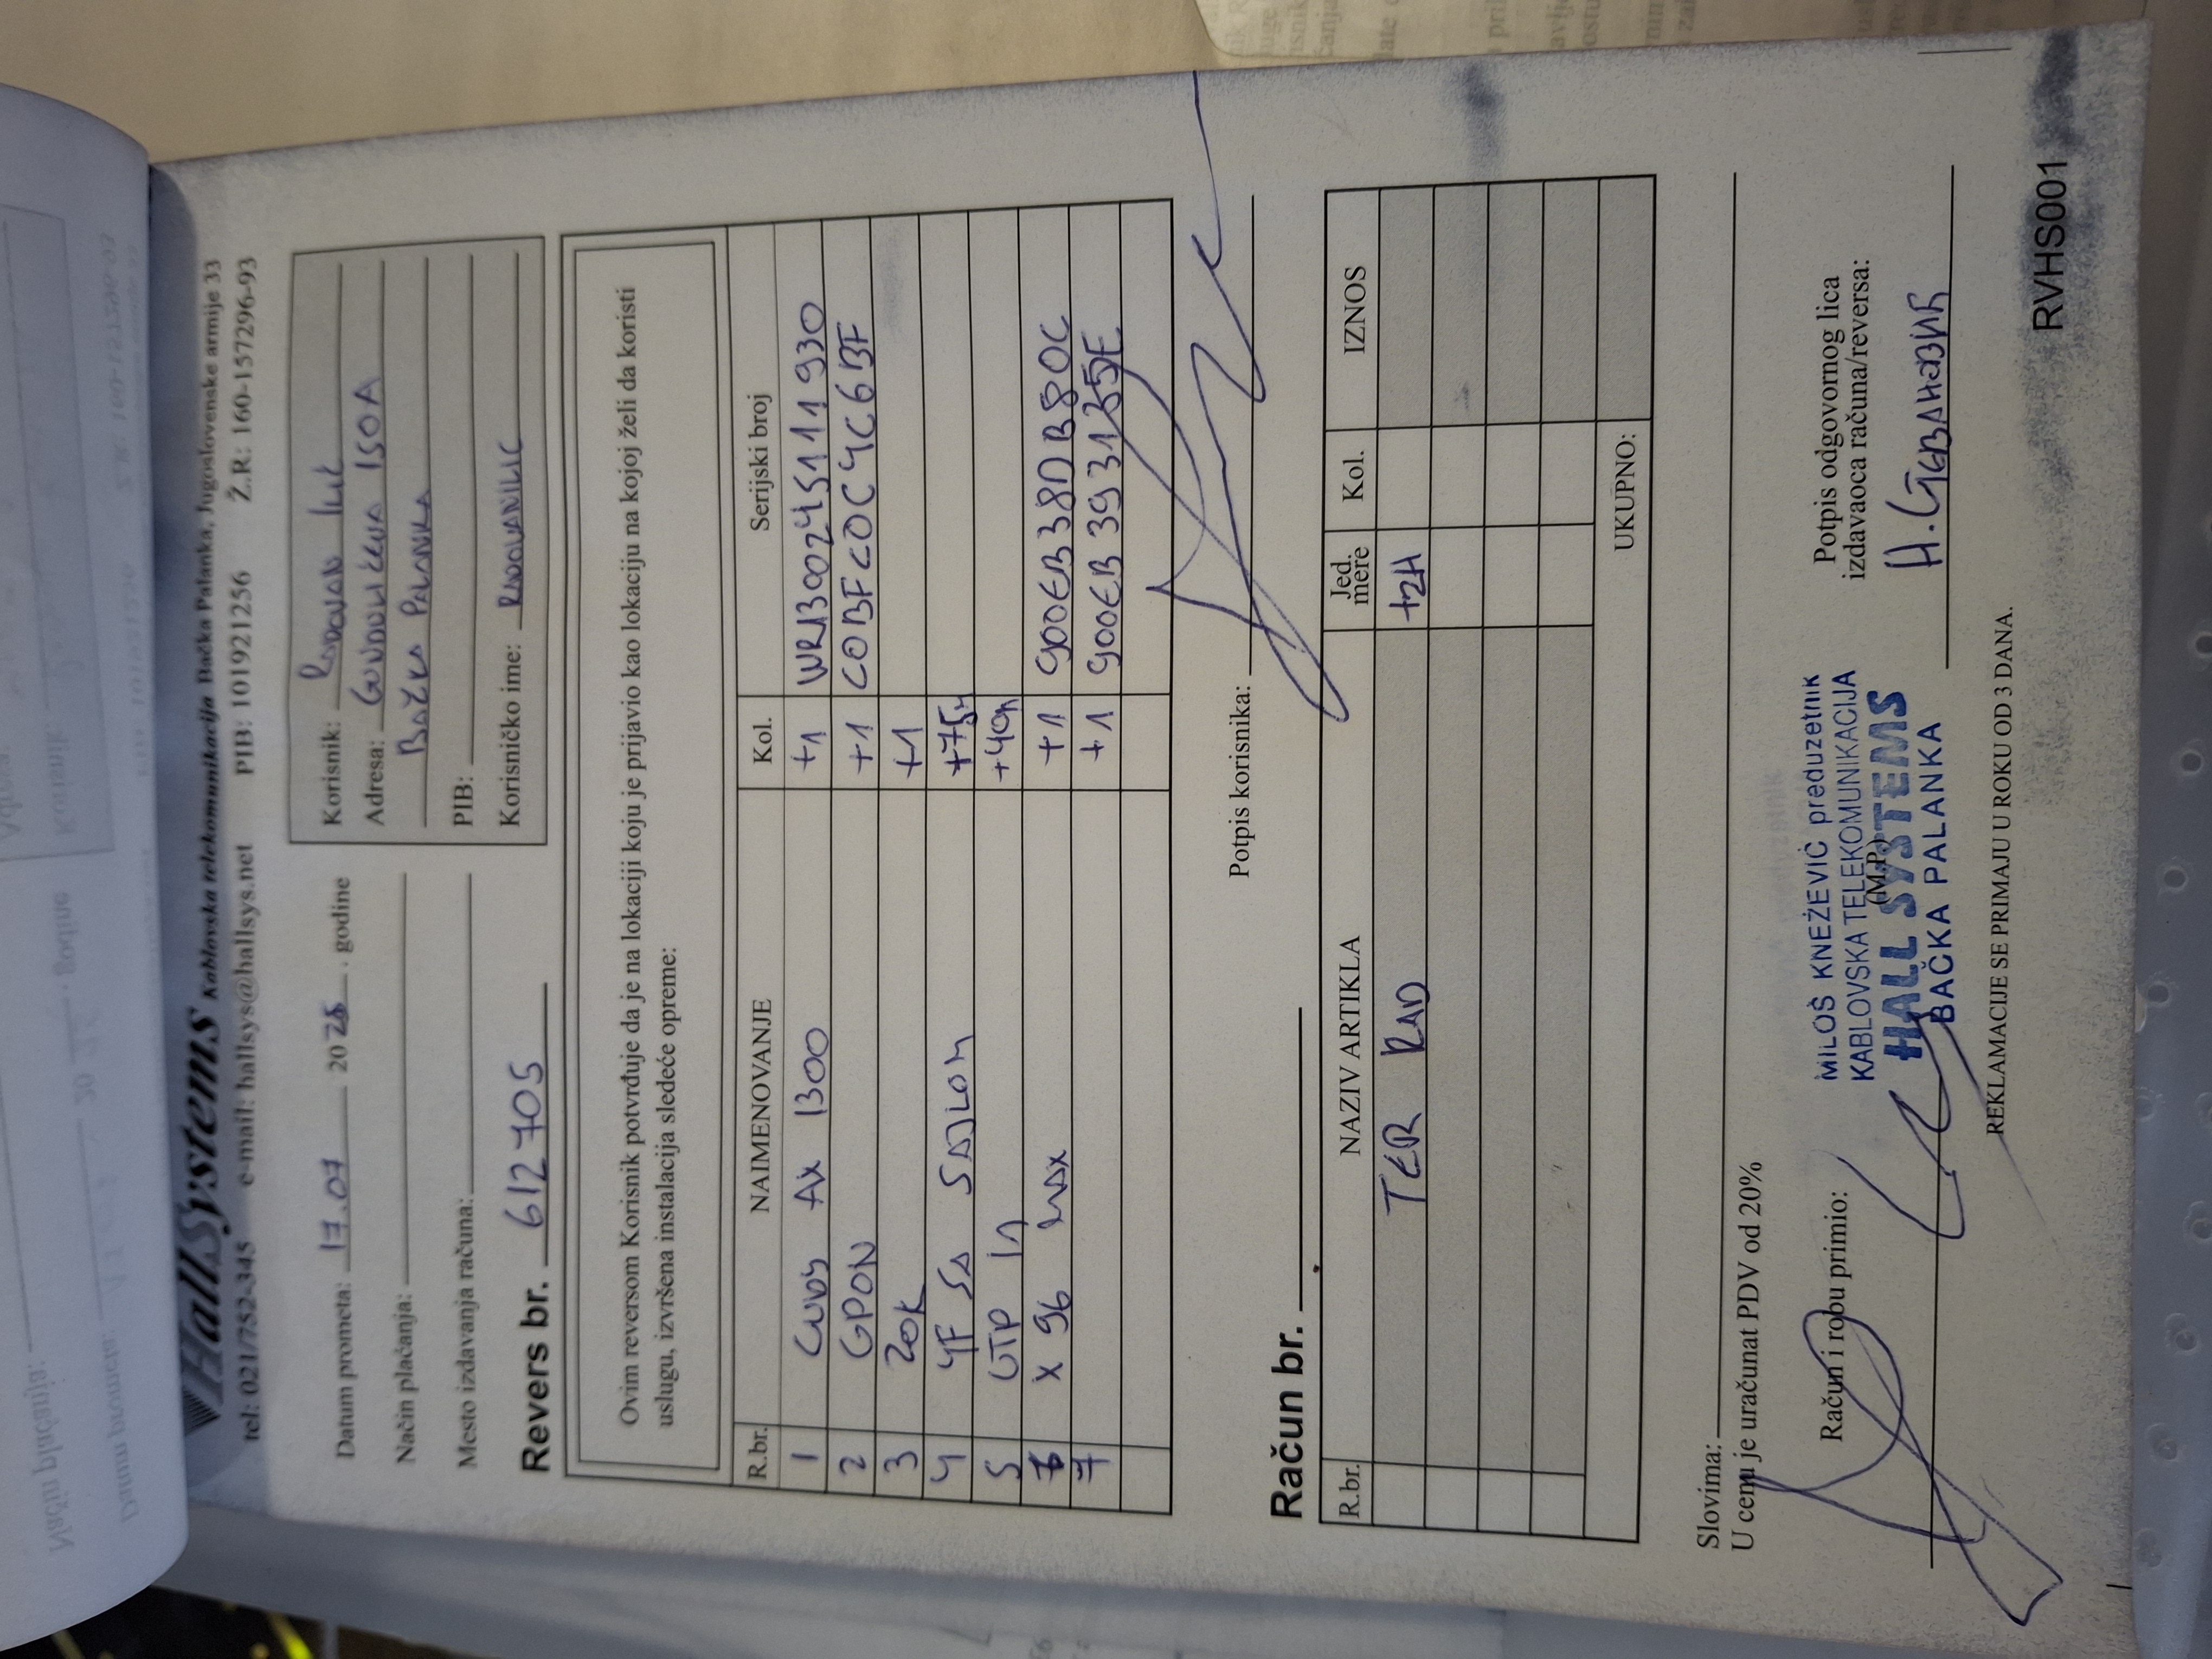 HallSystems Kablovska telekomunikacija Bačka Palanka, Jugoslovenske armije 33
tel: 021/752-345 e-mail: hallsys@hallsys.net PIB: 101921256 Ž.R: 160-157296-93
Datum prometa: 17.07 2025. godine
Način plaćanja:
Mesto izdavanja računa:
Korisnik: RADOVAN ILIĆ
Adresa: GUNDULIĆEVA 150A
BAČKA PALANKA
PIB:
Korisničko ime: RADOVANILIC
Revers br. 612705
Ovim reversom Korisnik potvrđuje da je na lokaciji koju je prijavio kao lokaciju na kojoj želi da koristi
uslugu, izvršena instalacija sledeće opreme:
R.br. NAIMENOVANJE Kol. Serijski broj
1 CUDY AX 1300 +1 WR13002451111930
2 GPON +1 C0BFC0C4C6BF
3 ZOK +1
4 4F SA SAJLOM +75m
5 UTP In +40m
6 X 96 MAX +1 900EB38DB80C
7 +1 900EB393125E
Potpis korisnika:
Račun br.
R.br. NAZIV ARTIKLA Jed. mere Kol. IZNOS
TER RAD +2H
UKUPNO:
Slovima:
U cenu je uračunat PDV od 20%
Račun i robu primio:
MILOŠ KNEŽEVIĆ preduzetnik
KABLOVSKA TELEKOMUNIKACIJA
(M.P.)
HALL SYSTEMS
BAČKA PALANKA
Potpis odgovornog lica
izdavaoca računa/reversa:
REKLAMACIJE SE PRIMAJU U ROKU OD 3 DANA.
RVHS001